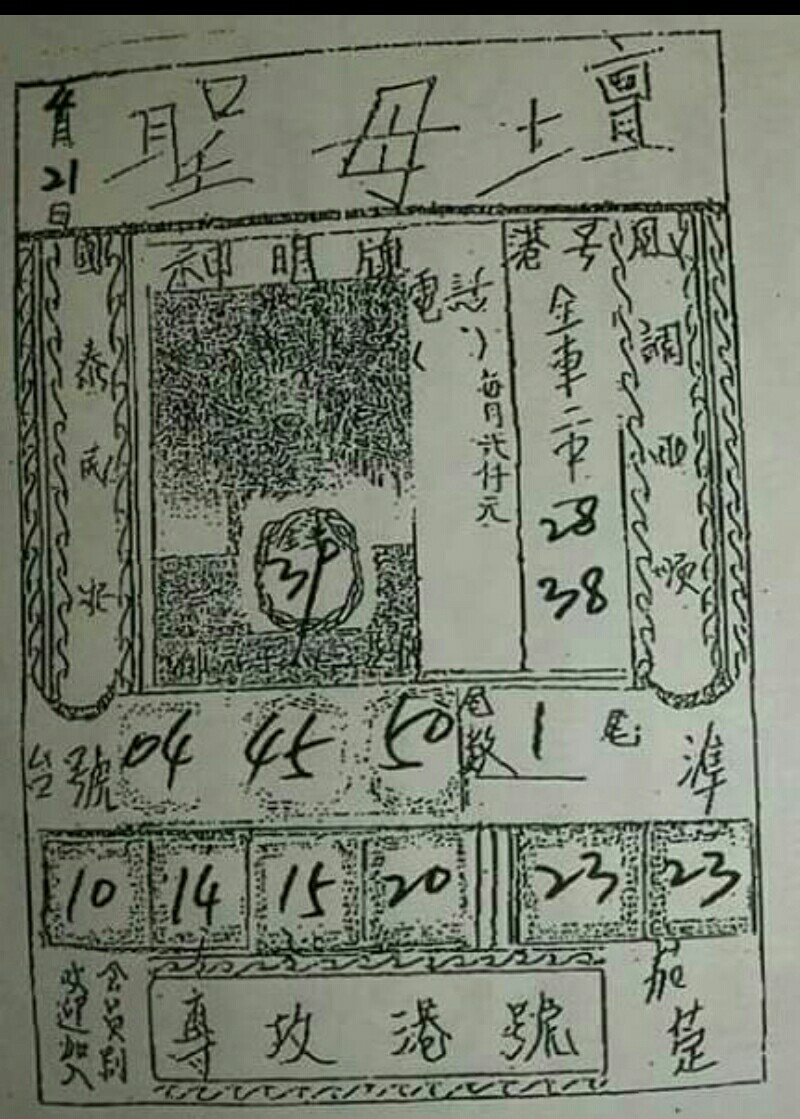 4月21日
聖母壇
國泰民安
神明牌
電話
( )
每月弍仟元
港号
金車二中
28
38
風調雨順
39
台號 04 45 50
尾数 1 尾
準
10 14 15 20 23 23
会員制
欢迎加入
專攻港號
茄萣